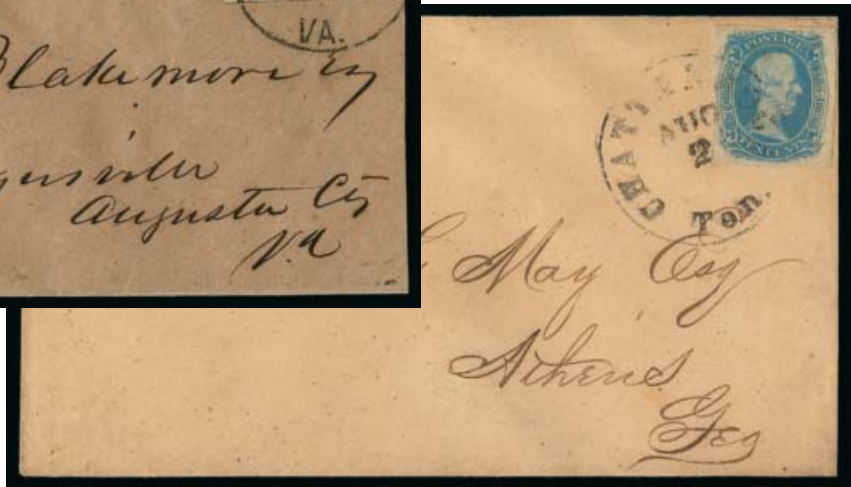 VA.
Blakemore Esq
Augusta Cty
Va
POSTAGE
TEN CENTS
CHAT
AUG
2
Ten.
May Esq
Athens
Geo